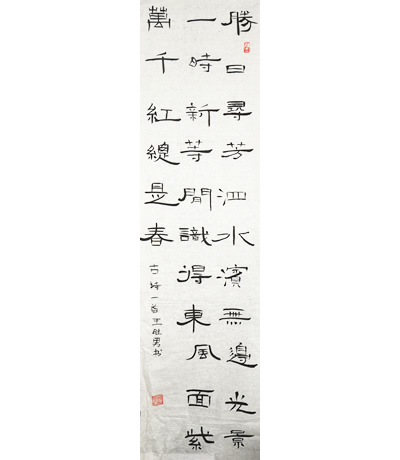 勝日尋芳泗水濱無邊光景
一時新等閒識得東風面紫
萬千紅總是春
古诗一首王